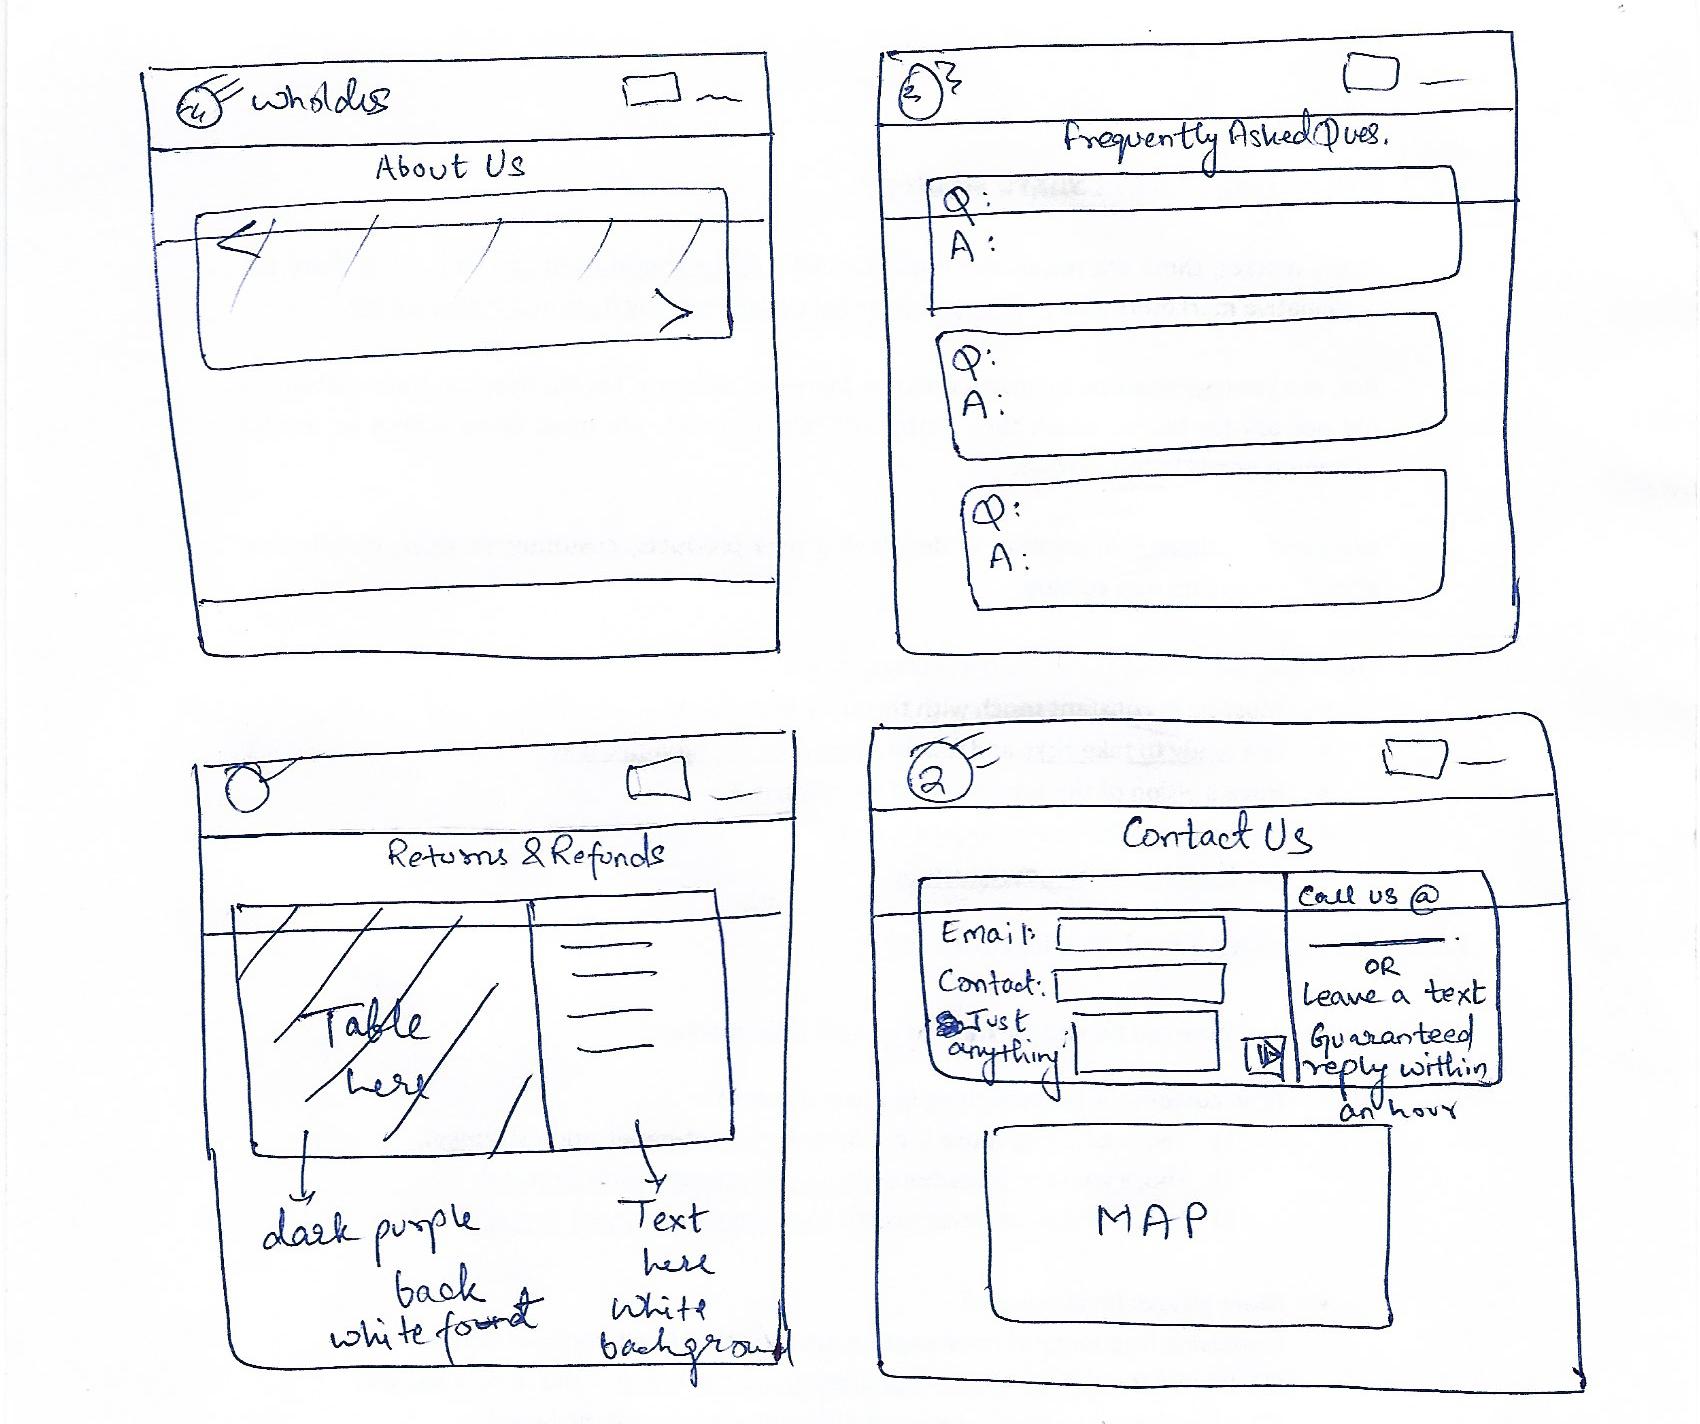 wholdus
About Us
Frequently Asked Ques.
Q:
A:
Q:
A:
Q:
A:
Returns & Refunds
Table
here
dark purple
back
white font
Text
here
white
background
2
Contact Us
Email:
Contact:
Just
anything:
Call us @
OR
Leave a text
Guaranteed
reply within
an hour
MAP